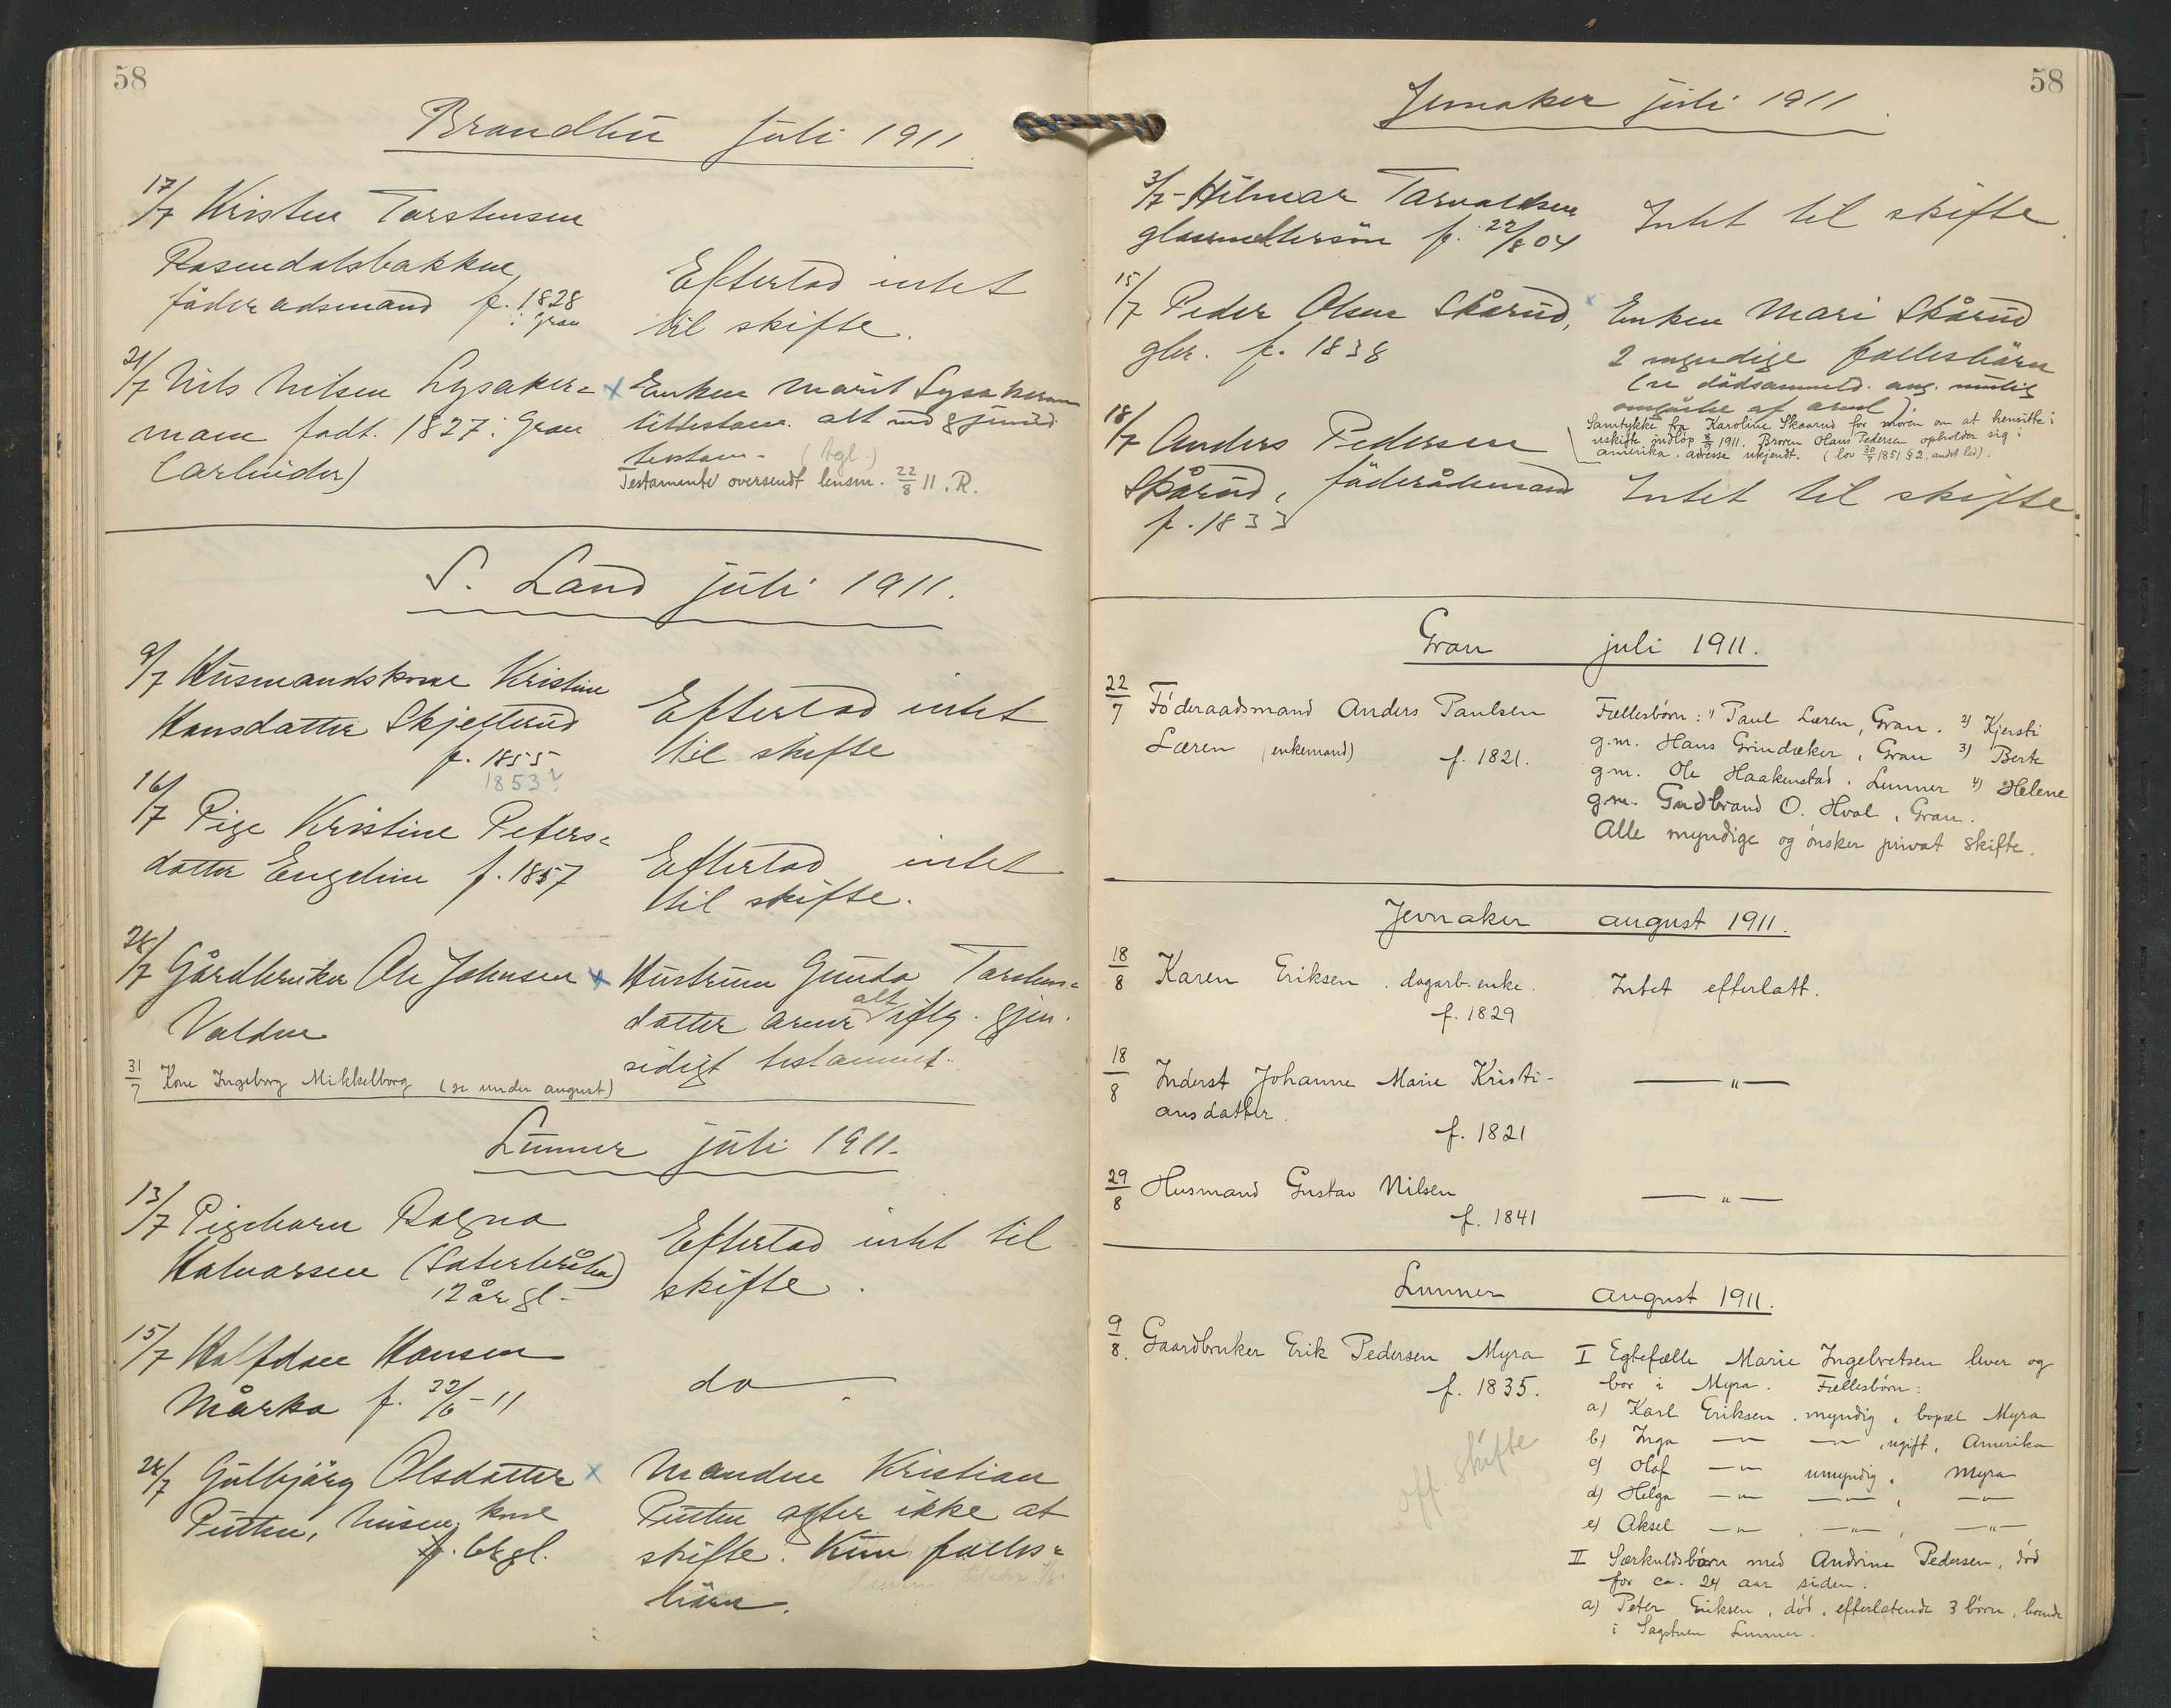 58
Brandbu juli 1911.
17/7 Kristen Torstensen
Rosendalsbakken,
föderadsmand f. 1828
i Gran
Efterlod intet
til skifte.
21/7 Nils Nilsen Lysaker=
moen født. 1827 i Gran
(arbeider)
x Enken Marit Lysakermoen
alt
testam. (tgl.)
Testamente oversendt lensm. 22/8 11. R.
S. Land juli 1911.
9/7 Husmandskone Kristine
Hansdatter Skjellerud
f. 1855
1853?
Efterlod intet
til skifte
16/7 Pige Kristine Peters=
datter Engelien f. 1857
Efterlod intet
til skifte.
28/7 Gårdbruker Ole Johnsen x
Volden
Hustruen Gunda Torstens=
datter arver alt iflg. gjen.
sidigt testament.
31/7 Kone Ingeborg Mikkelborg (se under august)
Lunner juli 1911.
13/7 Pigebarn Ragna
Halvorsen (Sæterbråten)
12 år gl.
Efterlod intet til
skifte.
15/7 Halfdan Hansen
Mårka f. 22/6-11
do
28/7 Gulbjörg Olsdatter x
Putten, kone
gl.
Manden Kristian
Putten agter ikke at
skifte. Kun fælles=
börn.
58
Jevnaker juli 1911.
3/7 - Hilmar Torvaldsen
glasmeltersön f. 22/8 04
Intet til skifte.
15/7 Peder Olsen Skårud, x
gbr. f. 1838
Enken Mari Skårud
2 myndige fællesbörn
(se dödsanmeld. ang. mulig
omgåelse af arvel.)
Samtykke fra Karoline Skaarud for moren om at hensitte i
uskifte indløp 8/9 1911. Broren Olaus Pedersen opholder sig i
Amerika, adresse ukjendt. (lov 30/7 1851 § 2, andet led).
18/7 Anders Pedersen
Skårud, föderådsmand
f. 1833
Intet til skifte.
Gran juli 1911.
22/7 Föderaadsmand Anders Paulsen
Læren (enkemand) f. 1821.
Fællesbörn: 1) Paul Læren, Gran. 2) Kjersti
g.m. Hans Grindaker, Gran 3) Berte
g.m. Ole Haakenstad, Lunner 4) Helene
g.m. Gudbrand O. Hval, Gran.
Alle myndige og ønsker privat skifte.
Jevnaker august 1911.
18/8 Karen Eriksen, dagarb. enke.
f. 1829
Intet efterlatt.
18/8 Inderst Johanne Marie Kristi-
ansdatter.
f. 1821
— " —
29/8 Husmand Gustav Nilsen
f. 1841
— " —
Lunner august 1911.
9/8. Gaardbruker Erik Pedersen Myra
f. 1835.
off. skifte
I Egtefælle Marie Ingebretsen lever og
bor i Myra. Fællesbörn:
a) Karl Eriksen, myndig, bopæl Myra
b) Inga — " — — " —, ugift, Amerika
c) Olaf — " — umyndig, Myra
d) Helga — " — — " —, — " —
e) Aksel — " —, — " —, — " —
II Særkuldsbörn med Andrine Pedersen, död
for ca. 24 aar siden.
a) Peter Eriksen, död, efterlatende 3 börn, boende
i Sagstuen Lunner.